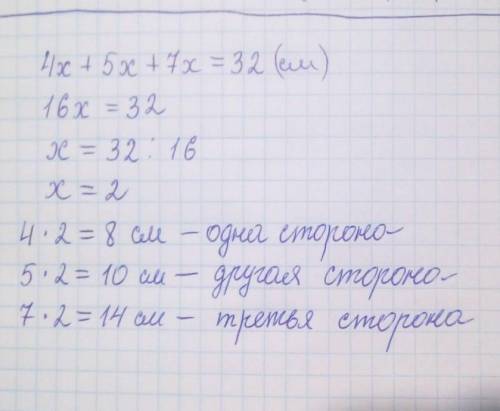 4x + 5x + 7x = 32 (см)
16x = 32
x = 32 : 16
x = 2
4 · 2 = 8 см — одна сторона
5 · 2 = 10 см — другая сторона
7 · 2 = 14 см — третья сторона